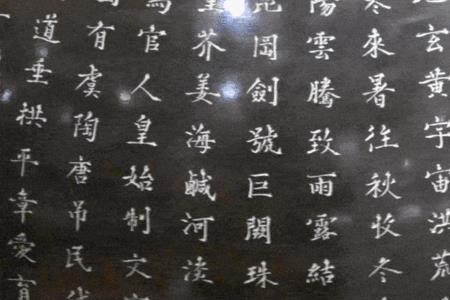 玄黃宇宙洪荒
來暑往秋收冬
陽雲騰致雨露結
岡劍號巨闕珠
芥姜海鹹河淡
官人皇始制文
有虞陶唐吊民
道垂拱平章愛育